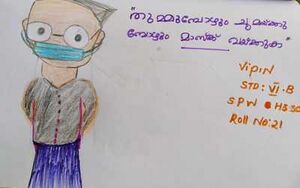 "തുമ്മുമ്പോഴും ചുമയ്ക്കു
മ്പോഴും മാസ്ക് വയ്ക്കുക"
VIPIN
STD: VI.B
SPW HSS
Roll No:21